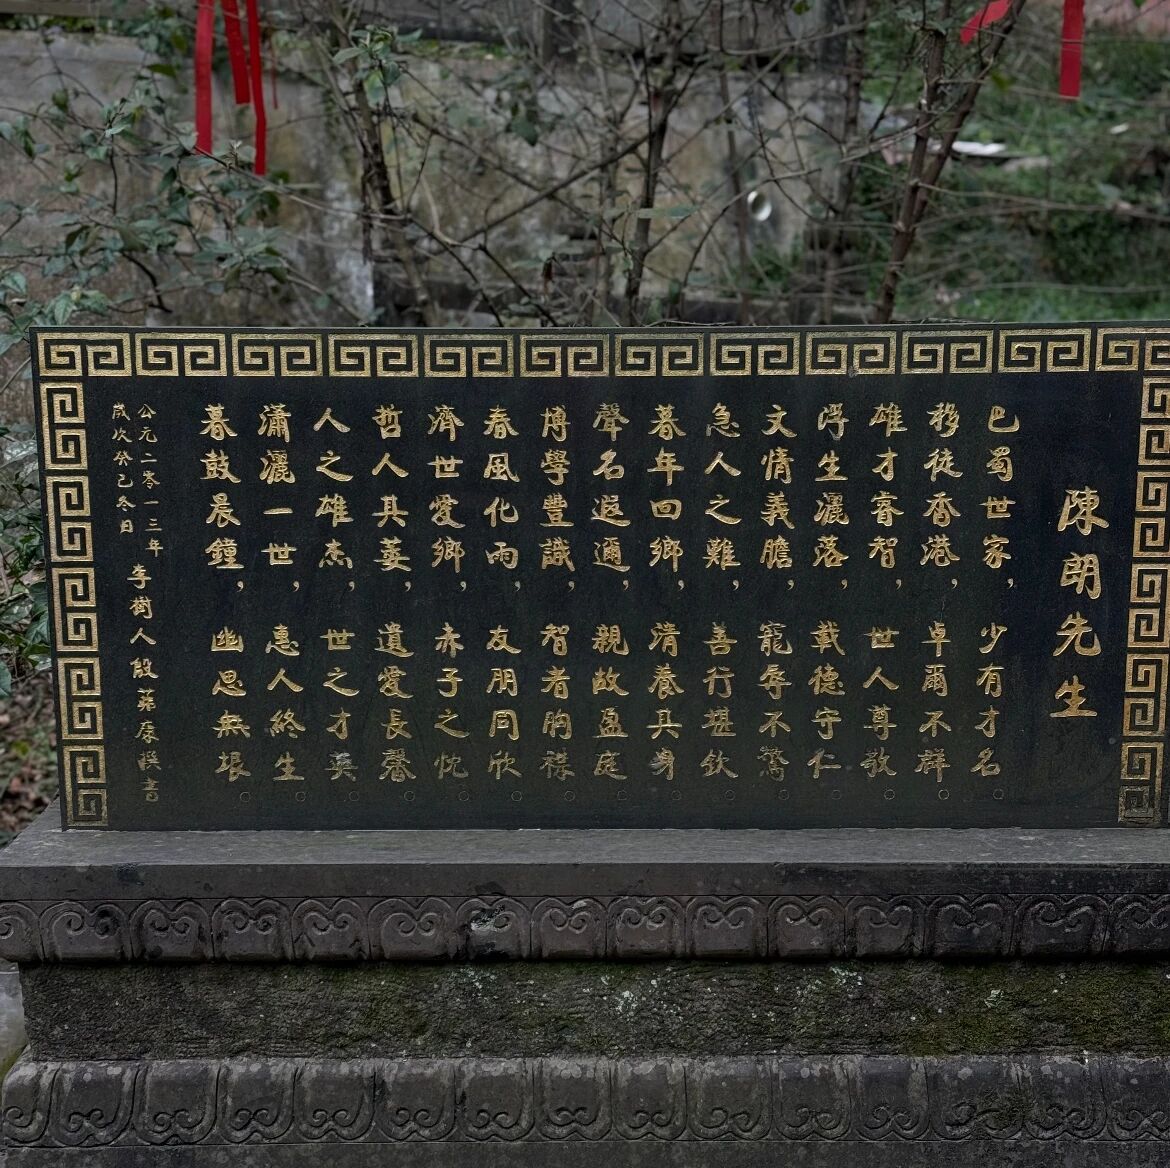 陳朗先生
巴蜀世家，少有才名。
移徒香港，卓爾不群。
雄才睿智，世人尊敬。
浮生灑落，載德守仁。
文情義膽，寵辱不驚。
急人之難，善行堪欽。
暮年回鄉，清養其身。
聲名遐邇，親故盈庭。
博學豐識，智者胸襟。
春風化雨，友朋同欣。
濟世愛鄉，赤子之忱。
哲人其萎，遺愛長馨。
人之雄杰，世之才英。
瀟灑一世，惠人終生。
暮鼓晨鐘，幽思無垠。
公元二零一三年
歲次癸巳冬日
李樹人殷 康撰書